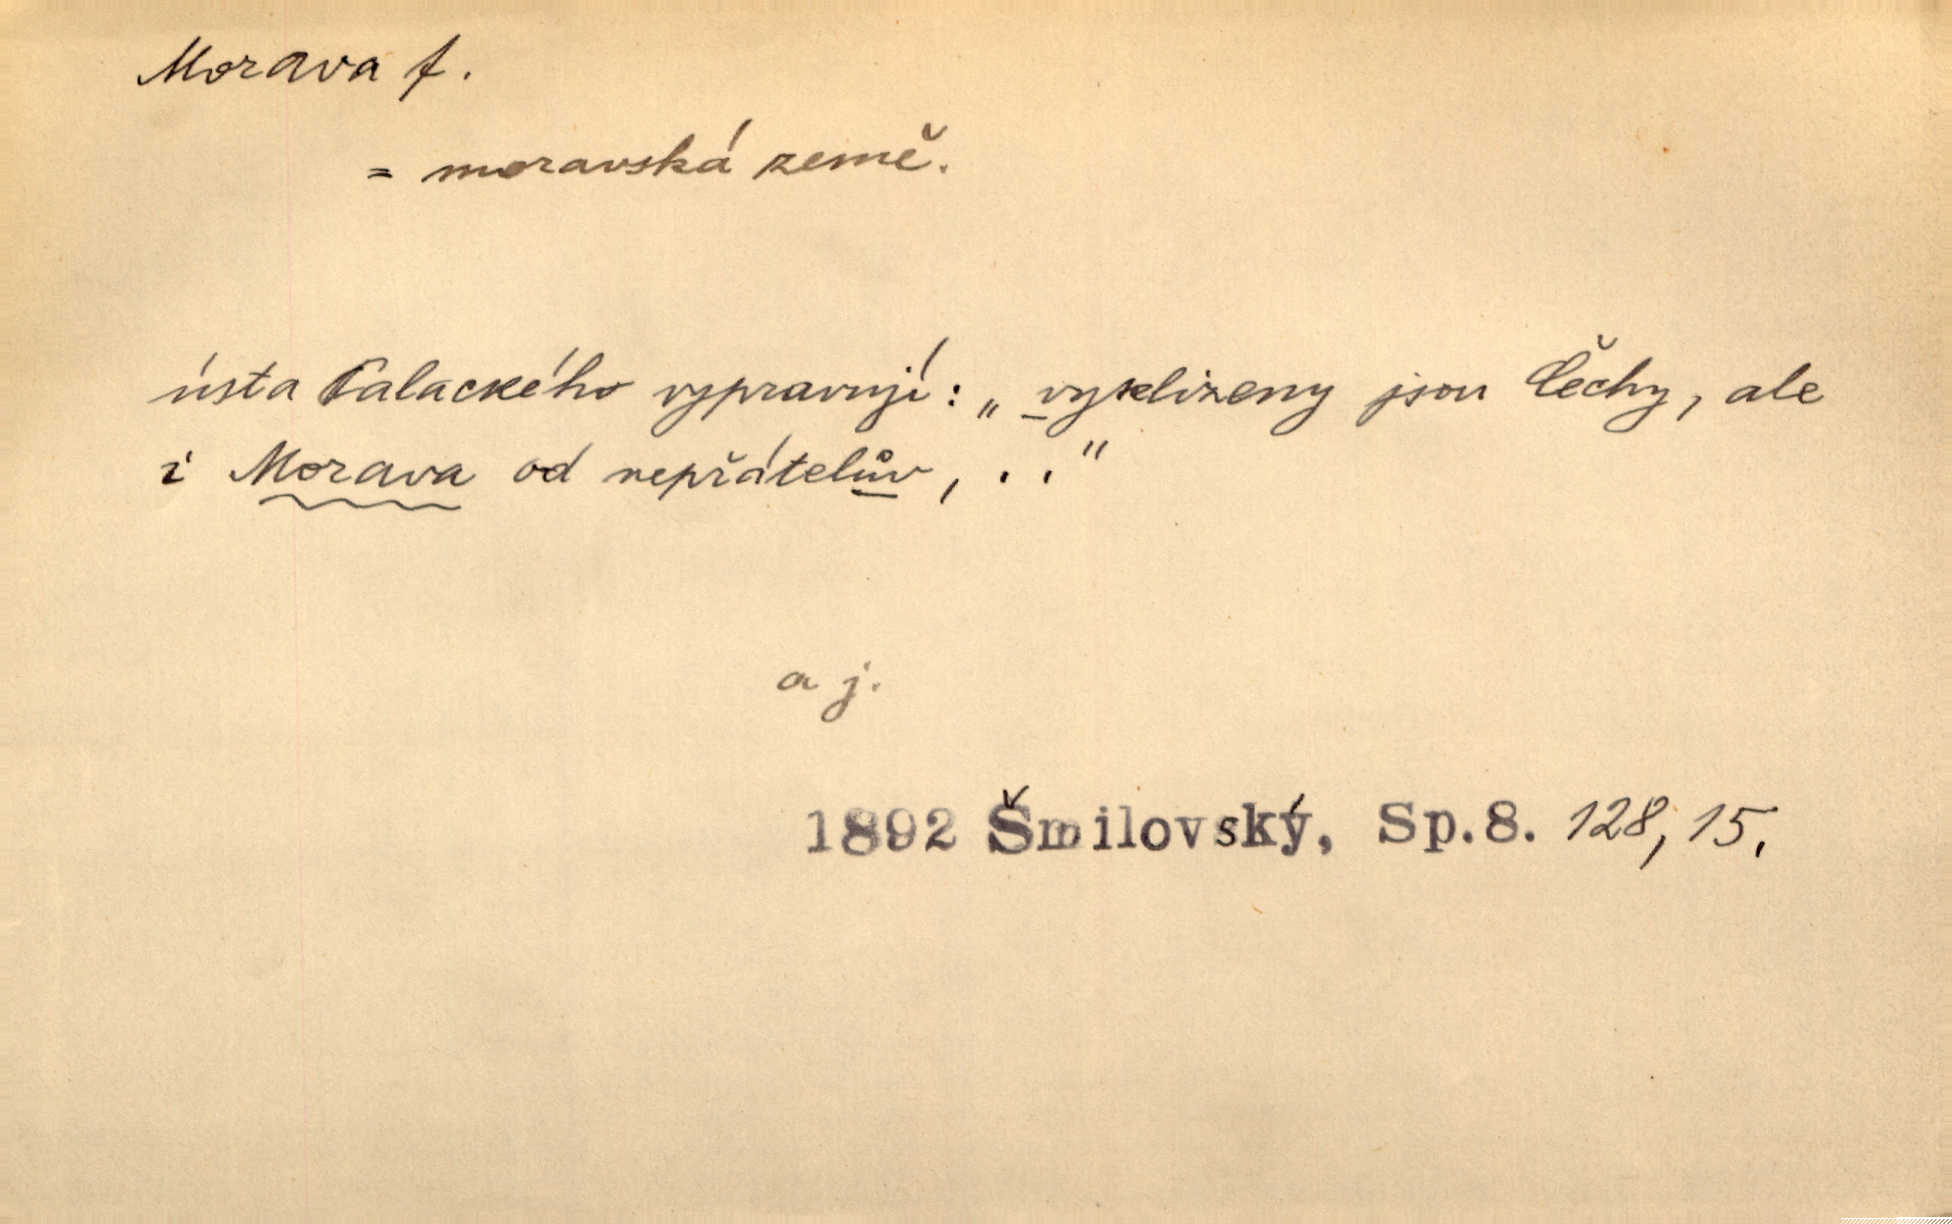 Morava f.
= moravská země.
ústa Palackého vypravují: „vyklizeny jsou Čechy, ale
i Morava od nepřátelův, . ."
a j.
1892 Šmilovský, Sp.8. 128, 15.